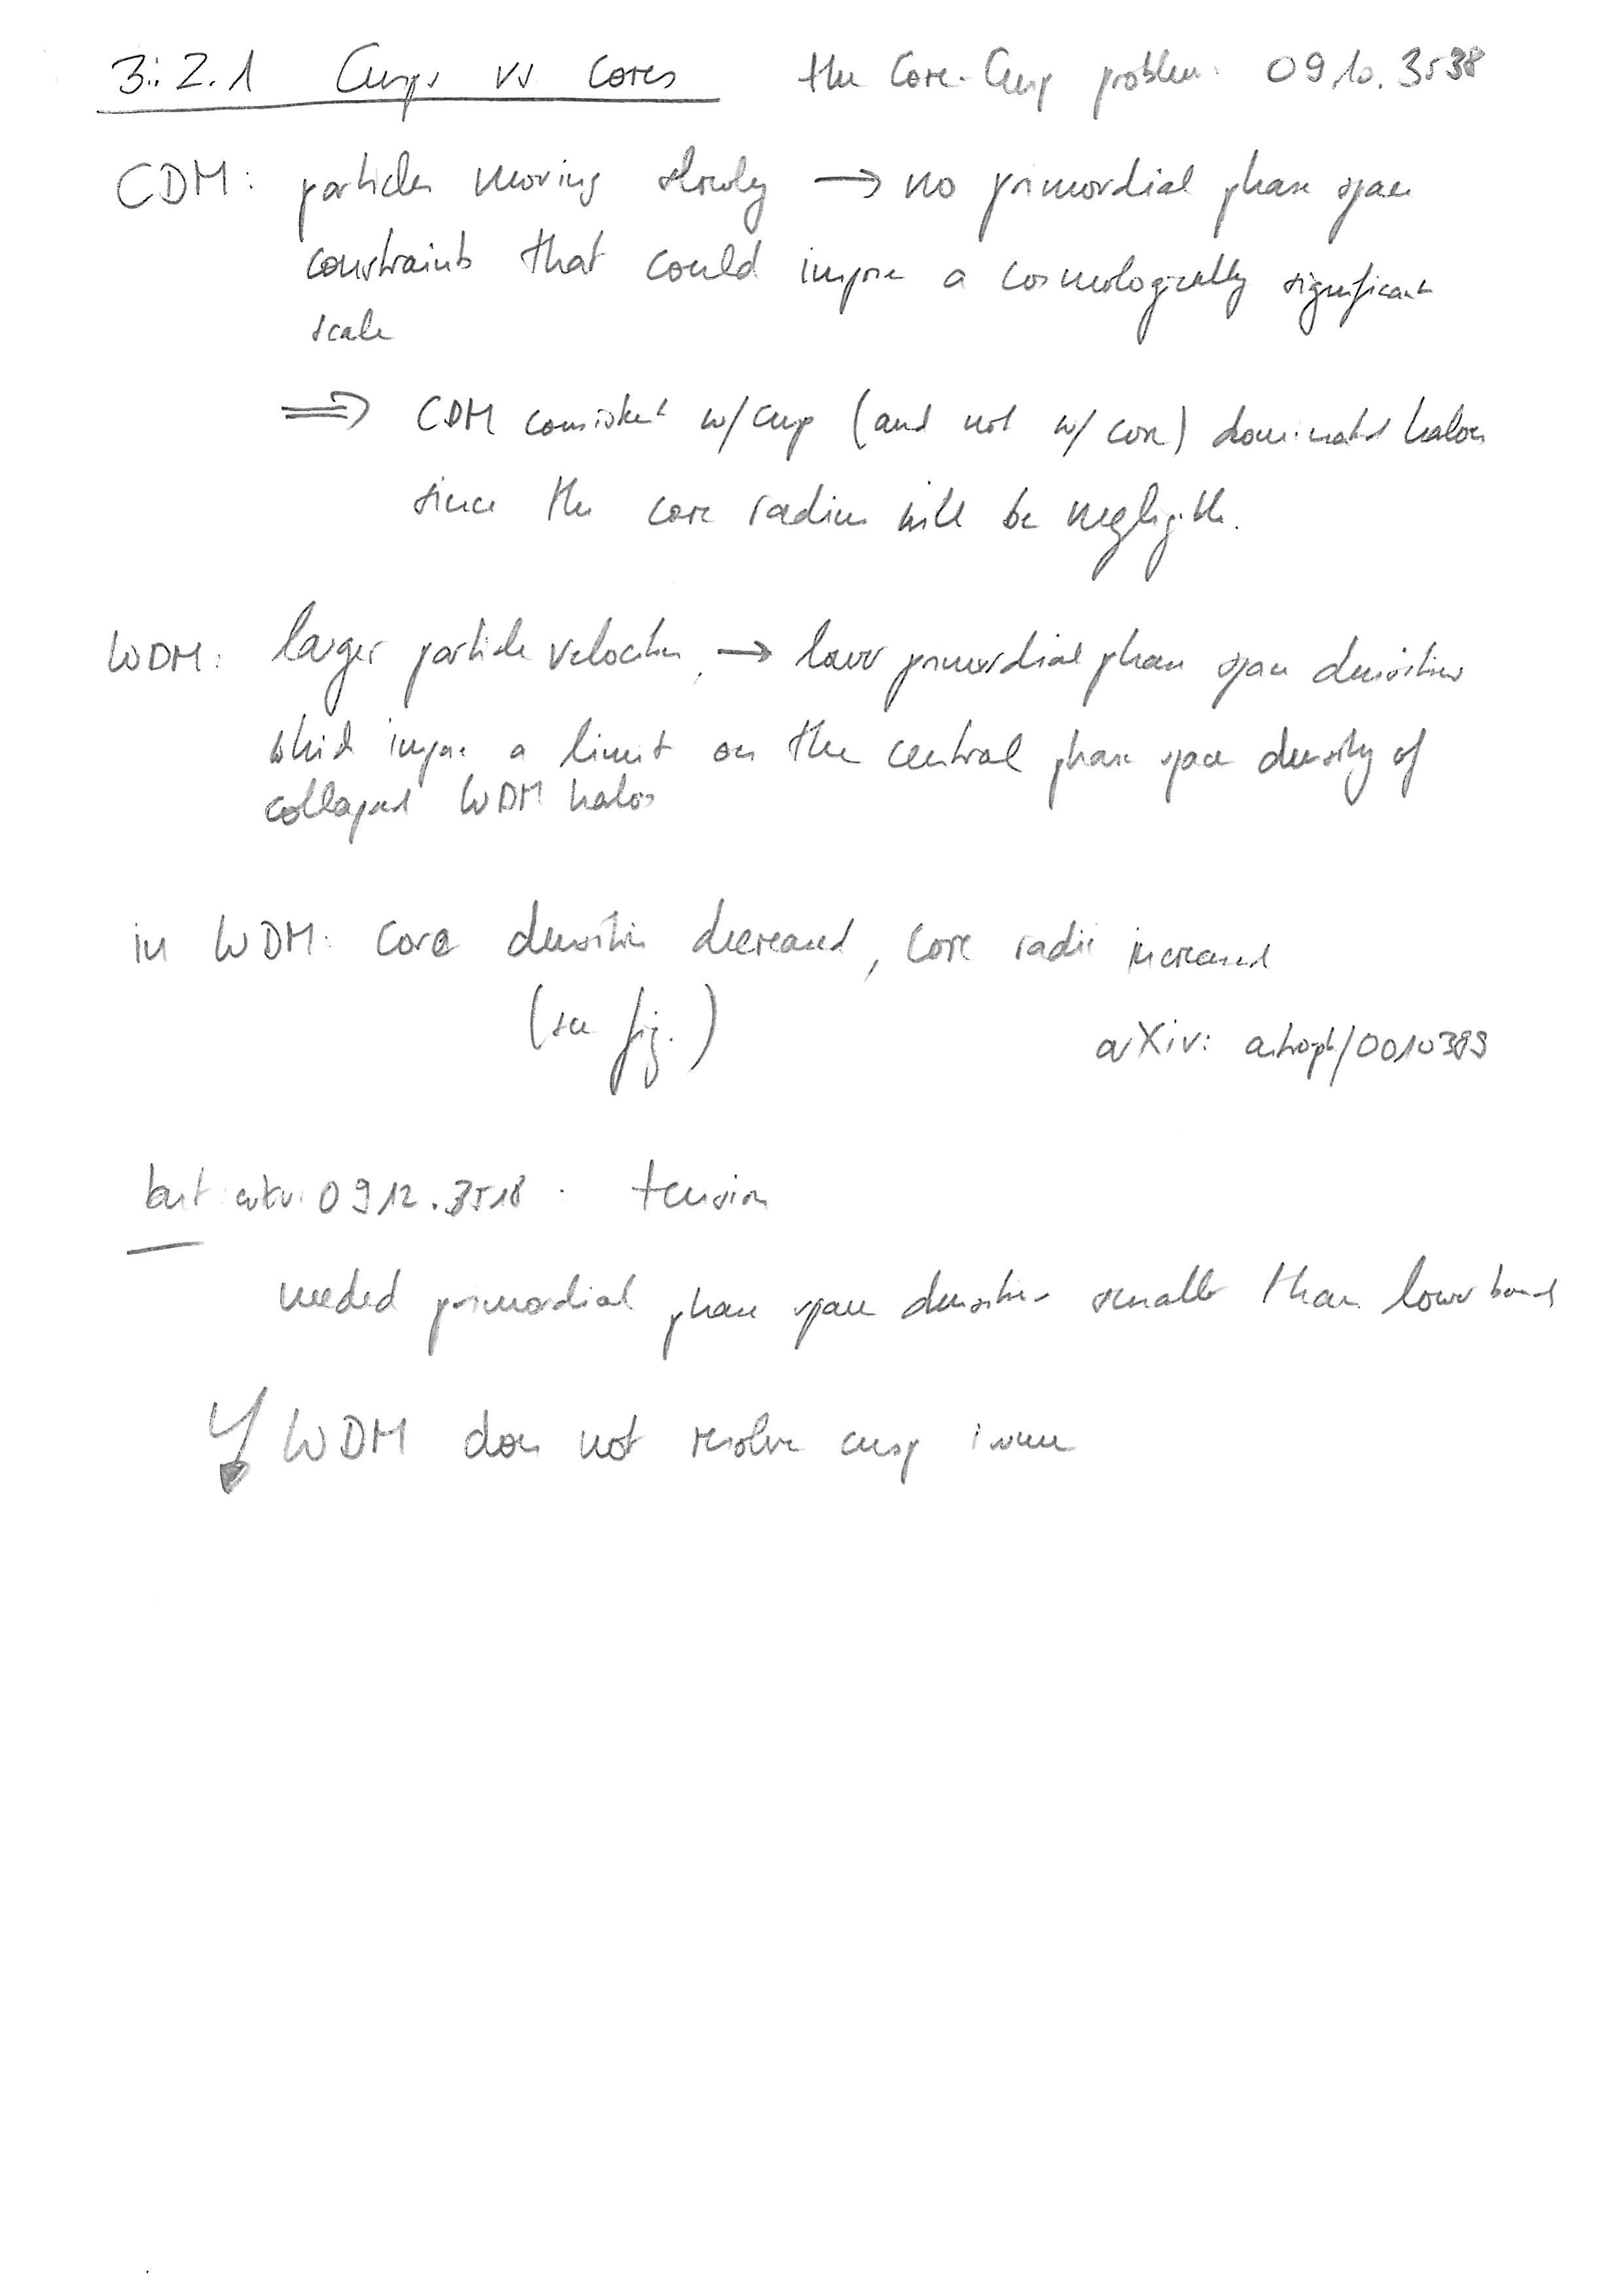 3.2.1 Cusps vs Cores the Core-Cusp problem: 0910.3538
CDM: particles moving slowly → no primordial phase space
constraints that could impose a cosmologically significant
scale
⇒ CDM consistent w/ cusp (and not w/ core) dominated halos
since the core radius will be negligible.
WDM: larger particle velocities, → lower primordial phase space densities
which impose a limit on the central phase space density of
collapsed WDM halos
in WDM: core densities decreased, core radii increased
(see fig.)
arXiv: astroph/0010389
but arxiv: 0912.3518 : tension
needed primordial phase space densities smaller than lower bound
↳ WDM does not resolve cusp issue